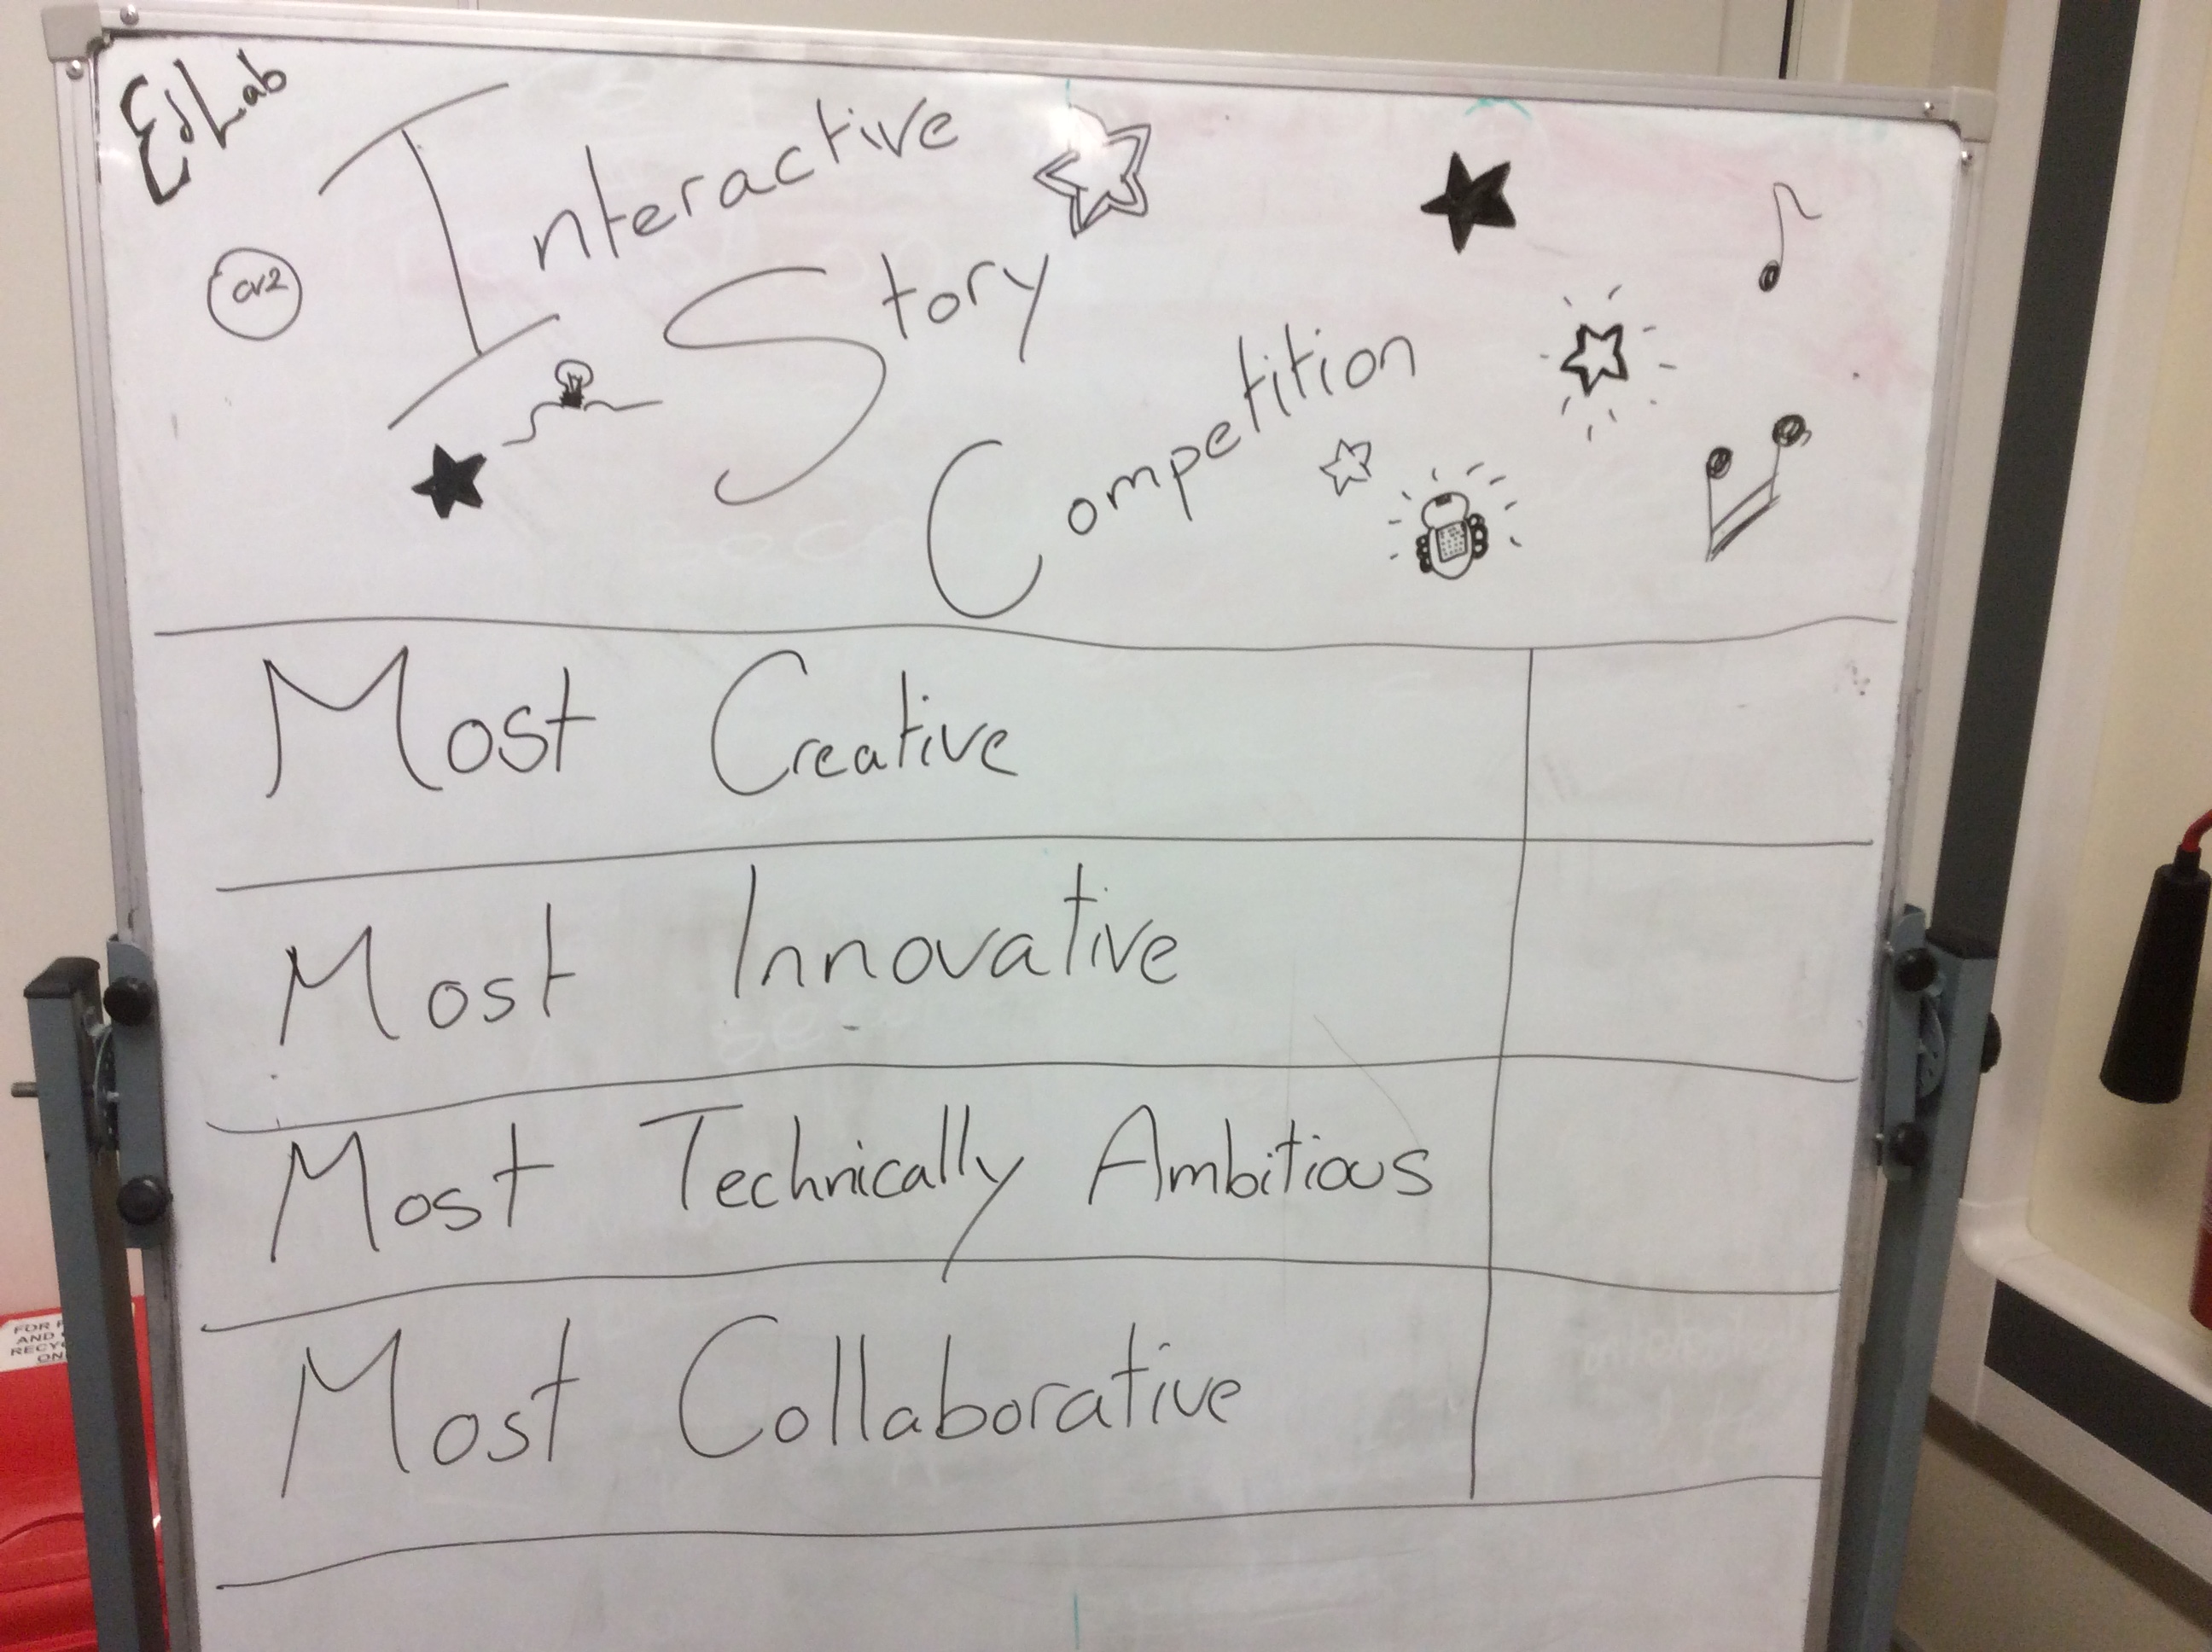 EdLab
Interactive
CV2
Story
Competition
Most Creative
Most Innovative
Most Technically Ambitious
Most Collaborative
FOR
AND